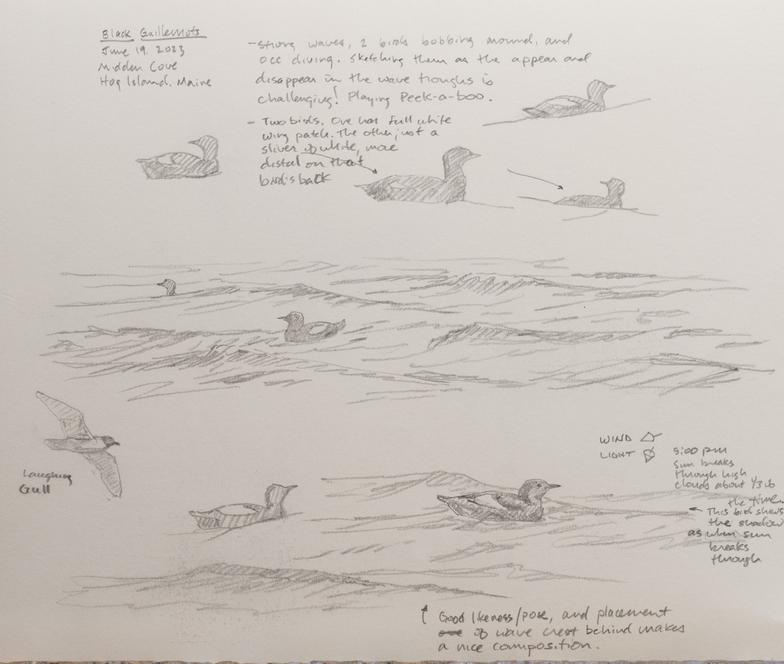 Black Guillemots
June 19, 2023
Midden Cove
Hog Island, Maine
- Strong waves, 2 birds bobbing around, and
occ diving. Sketching them as the appear and
disappear in the wave troughs is
challenging! Playing Peek-a-boo.
- Two birds. One has full white
wing patch. The other, just a
sliver of white, more
distal on that
bird's back
Laughing
Gull
WIND
LIGHT
5:00 pm
sun breaks
through high
clouds about 1/3 of
the time.
← This bird shows
the shadow
as when sun
breaks
through
↑ Good likeness/pose, and placement
of wave crest behind makes
a nice composition.